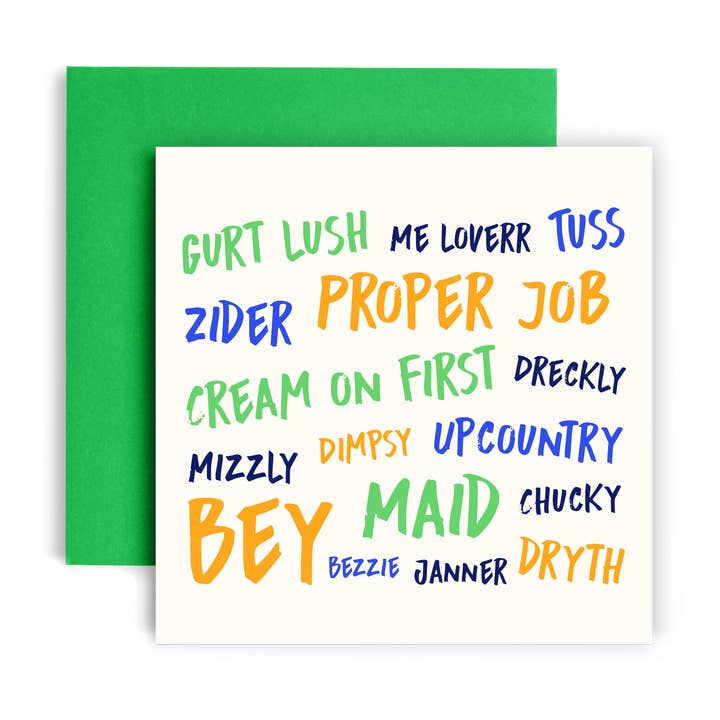 GURT LUSH ME LOVERR TUSS
ZIDER PROPER JOB
CREAM ON FIRST DRECKLY
MIZZLY DIMPSY UPCOUNTRY
BEY MAID CHUCKY
BEZZIE JANNER DRYTH